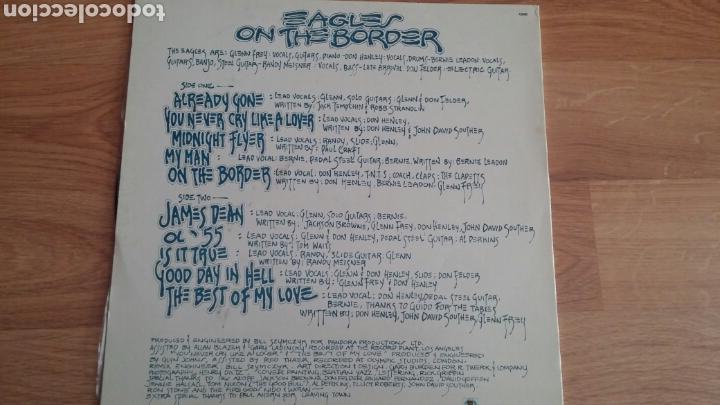 EAGLES
ON THE BORDER
THE EAGLES ARE: GLENN FREY: VOCALS, GUITARS, PIANO - DON HENLEY: VOCALS, DRUMS - BERNIE LEADON: VOCALS,
GUITARS, BANJO, STEEL GUITAR - RANDY MEISNER: VOCALS, BASS - LATE ARRIVAL DON FELDER: ELECTRIC GUITAR
SIDE ONE
ALREADY GONE : LEAD VOCALS: GLENN, SOLO GUITARS: GLENN & DON FELDER,
WRITTEN BY: JACK TEMPCHIN & ROBB STRANDLUN
YOU NEVER CRY LIKE A LOVER : LEAD VOCALS: DON HENLEY,
WRITTEN BY: DON HENLEY & JOHN DAVID SOUTHER
MIDNIGHT FLYER : LEAD VOCALS: RANDY, SLIDE: GLENN,
WRITTEN BY: PAUL CRAFT
MY MAN : LEAD VOCAL: BERNIE, PEDAL STEEL GUITAR: BERNIE, WRITTEN BY: BERNIE LEADON
ON THE BORDER : LEAD VOCAL: DON HENLEY, T.N.T.S: COACH, CLAPS: THE CLAPETTS
WRITTEN BY: DON HENLEY, BERNIE LEADON, GLENN FREY
SIDE TWO
JAMES DEAN : LEAD VOCAL: GLENN, SOLO GUITAR: BERNIE,
WRITTEN BY: JACKSON BROWNE, GLENN FREY, DON HENLEY, JOHN DAVID SOUTHER
OL' 55 : LEAD VOCALS: GLENN & DON HENLEY, PEDAL STEEL GUITAR: AL PERKINS
WRITTEN BY: TOM WAITS
IS IT TRUE : LEAD VOCALS: RANDY, SLIDE GUITAR: GLENN
WRITTEN BY: RANDY MEISNER
GOOD DAY IN HELL : LEAD VOCALS: GLENN & DON HENLEY, SLIDE: DON FELDER
WRITTEN BY: GLENN FREY & DON HENLEY
THE BEST OF MY LOVE : LEAD VOCAL: DON HENLEY, PEDAL STEEL GUITAR,
BERNIE, THANKS TO GUIDO FOR THE TABLES
WRITTEN BY: DON HENLEY, JOHN DAVID SOUTHER, GLENN FREY
PRODUCED & ENGINEERED BY BILL SZYMCZYK FOR PANDORA PRODUCTIONS LTD.
ASSISTED BY ALLAN BLAZEK & GARY LADINSKY RECORDED AT THE RECORD PLANT, LOS ANGELES
"YOU NEVER CRY LIKE A LOVER" & "THE BEST OF MY LOVE" PRODUCED & ENGINEERED
BY GLYN JOHNS, ASSISTED BY ROD THAER, RECORDED AT OLYMPIC STUDIOS, LONDON
REMIX ENGINEER: BILL SZYMCZYK ART DIRECTION & DESIGN: GARY BURDEN FOR R. TWERK & COMPANY
PHOTOGRAPHY: HENRY DILTZ COVER PAINTING: BEATIAN YAZZ LETTERING: RICK GRIFFIN
SPECIAL THANKS TO JACKSON BROWNE, DON FELDER, DAVID GEFFEN
AL PERKINS, ELLIOT ROBERTS, JOHN DAVID SOUTHER,
RON STONE AND
EXTRA SPECIAL THANKS TO PAUL AHERN FOR LEAVING TOWN
todocoleccion